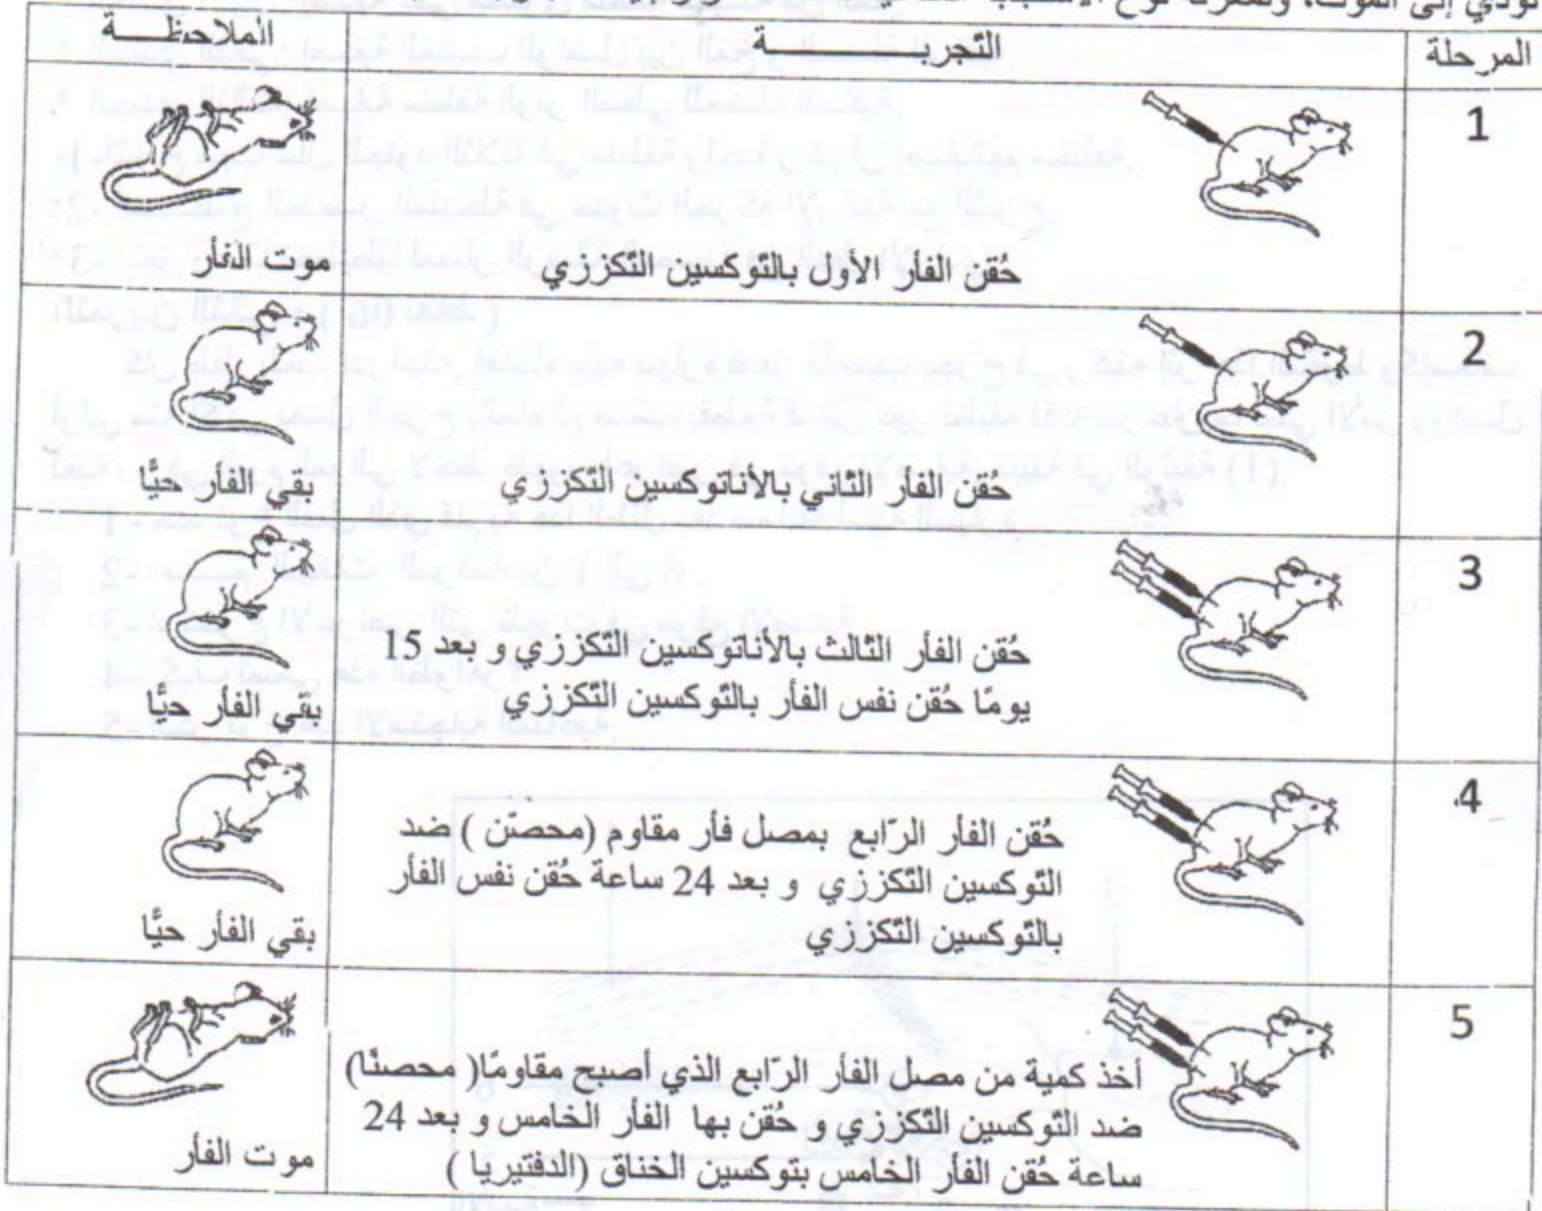 تؤدي إلى الموت، ولمعرفة نوع
المرحلة التجربـــــــة الملاحظـــة
1
حُقن الفأر الأول بالتوكسين التكززي
موت الفأر
2
حُقن الفأر الثاني بالأناتوكسين التكززي
بقي الفأر حيًّا
3
حُقن الفأر الثالث بالأناتوكسين التكززي و بعد 15
يومًا حُقن نفس الفأر بالتوكسين التكززي
بقي الفأر حيًّا
4
حُقن الفأر الرّابع بمصل فأر مقاوم (محصّن ) ضد
التوكسين التكززي و بعد 24 ساعة حُقن نفس الفأر
بالتوكسين التكززي
بقي الفأر حيًّا
5
أخذ كمية من مصل الفأر الرّابع الذي أصبح مقاومًا( محصنًا)
ضد التوكسين التكززي و حُقن بها الفأر الخامس و بعد 24
ساعة حُقن الفأر الخامس بتوكسين الخناق (الدفتيريا )
موت الفأر